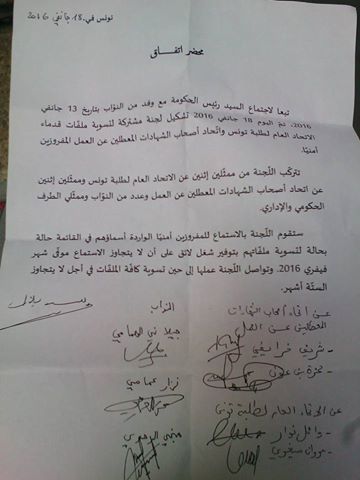 تونس في، 18 جانفي 2016
محضر اتفاق
تبعا لاجتماع السيد رئيس الحكومة مع وفد من النوّاب بتاريخ 13 جانفي
2016، تمّ اليوم 18 جانفي 2016 تشكيل لجنة مشتركة لتسوية ملفّات قدماء
الاتحاد العام لطلبة تونس واتّحاد أصحاب الشهادات المعطلين عن العمل المفروزين
أمنيّا.
تتركّب اللّجنة من ممثّلين إثنين عن الاتحاد العام لطلبة تونس وممثّلين إثنين
عن اتحاد أصحاب الشهادات المعطلين عن العمل وعدد من النوّاب وممثّلي الطرف
الحكومي والإداري.
ستقوم اللّجنة بالاستماع للمفروزين أمنيا الواردة أسماؤهم في القائمة حالة
بحالة لتسوية ملفّاتهم بتوفير شغل لائق على أن لا يتجاوز الاستماع موفّى شهر
فيفري 2016. وتواصل اللّجنة عملها إلى حين تسوية كافّة الملفّات في أجل لا يتجاوز
الستّة أشهر.
عن اتحاد أصحاب الشهادات
المعطلين عن العمل
- شريف خرايفي
- حمزة بن عون
عن الاتحاد العام لطلبة تونس
- وائل نوار
- مروان
النواب
جيلاني الهمامي
نزار عمامي
منجي الرحوي